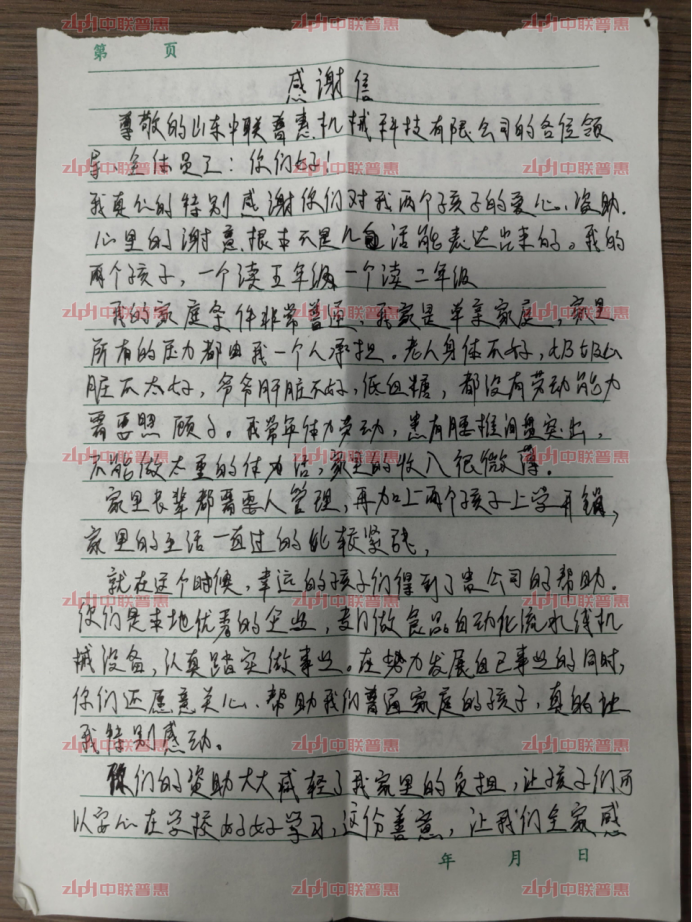 第 页
感谢信
尊敬的山东中联普惠机械科技有限公司的各位领
导、全体员工：你们好！
我真心的特别感谢你们对我两个孩子的爱心、资助.
心里的谢意根本不是几句话能表达出来的。我的
两个孩子，一个读五年级，一个读二年级
我的家庭条件非常普通，我家是单亲家庭，家里
所有的压力都由我一个人承担。老人身体不好，奶奶心
脏不太好，爷爷肝脏不好，低血糖，都没有劳动能力
需要照顾了。我常年体力劳动，患有腰椎间盘突出，
不能做太重的体力活，家里的收入很微薄。
家里长辈都需要人管理，再加上两个孩子上学开销，
家里的生活一直过的比较紧张，
就在这个时候，幸运的孩子们得到了贵公司的帮助.
你们是本地优秀的企业，专门做食品自动化流水线机
械设备，认真踏实做事业。在努力发展自己事业的同时，
你们还愿意关心、帮助我们普通家庭的孩子，真的让
我特别感动。
你们的资助大大减轻了我家里的负担，让孩子们可
以安心在学校好好学习，这份善意，让我们全家感
年 月 日
zlph中联普惠